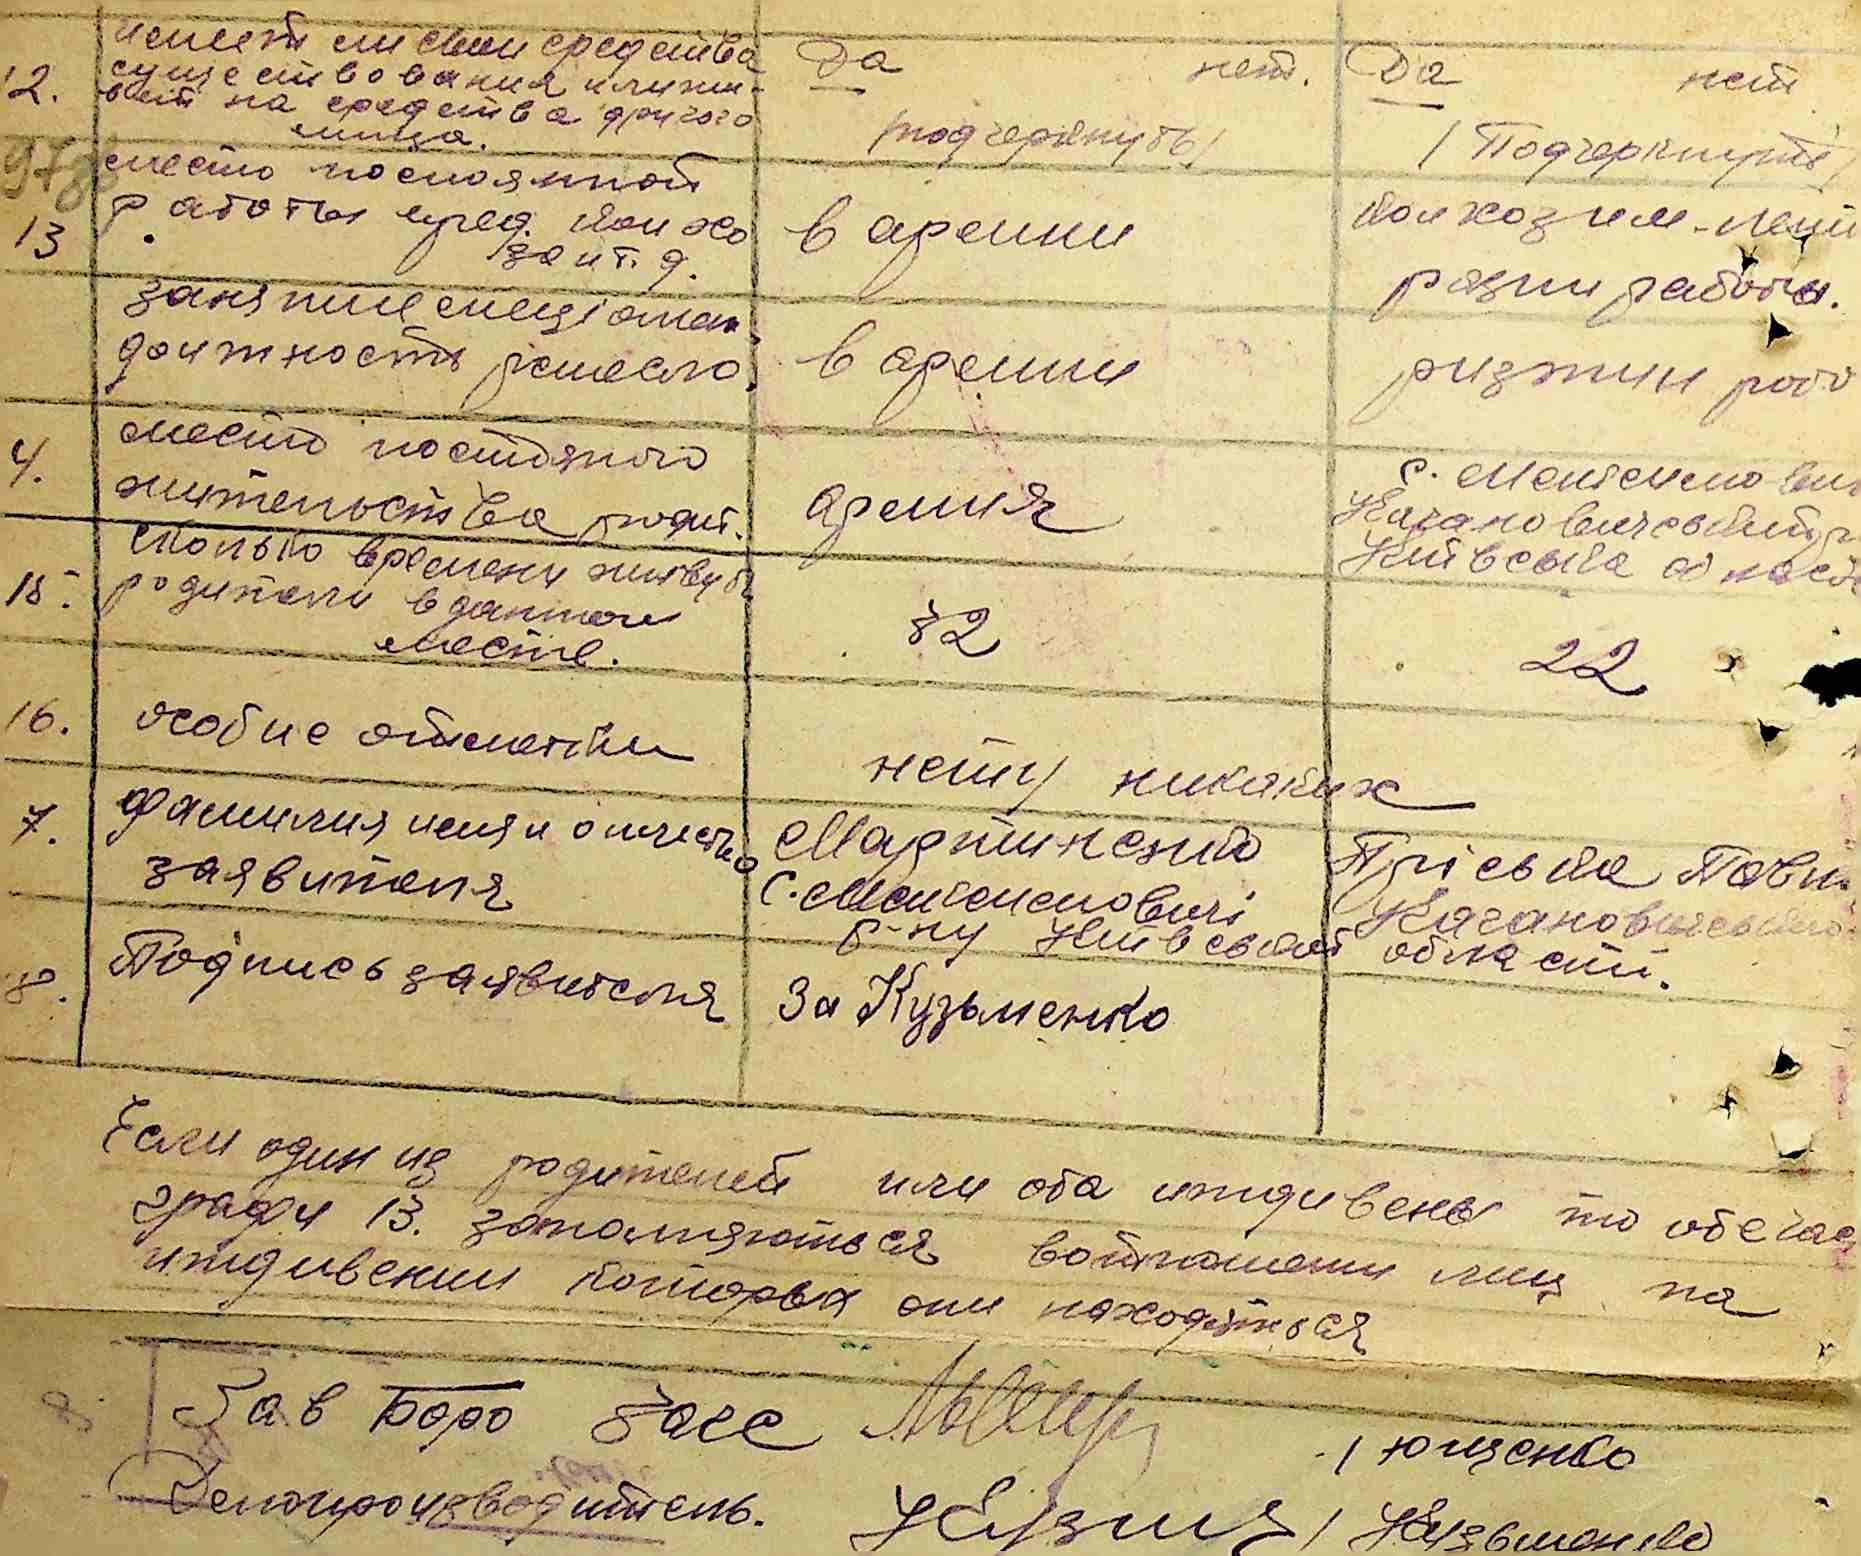 12. имеет ли свои средства
существования или жи-
вет на средства другого
лица.
Да нет.
/подчеркнуть/
Да нет
/Подчеркнуть/
978
13 место постоянной
работы пред. колхо
за и т. д.
в армии
колхоз им. Лени
разни работы.
занятие специал
должность ремесло,
в армии
ризжии робо
4. место постояного
жительства родит.
армия
с.
Кагановичский р
Київська область
15. сколько времени живуть
родители в данном
месте.
32
22
16. особие отметки
нету никаких
7. фамилия имя и отчество
заявителя
Мартиненко Пріська Павл
с. Кагановичського
р-ну Київської области.
8. Подпись заявителя
За Кузьменко
Если один из родителей или оба иждивены то обе
графи 13. заполняються вотношении лиц на
иждивении которых они находяться
Зав Бюро Загс
/ Ющенко
Делопроизводитель.
Кузьм / Кузьменко